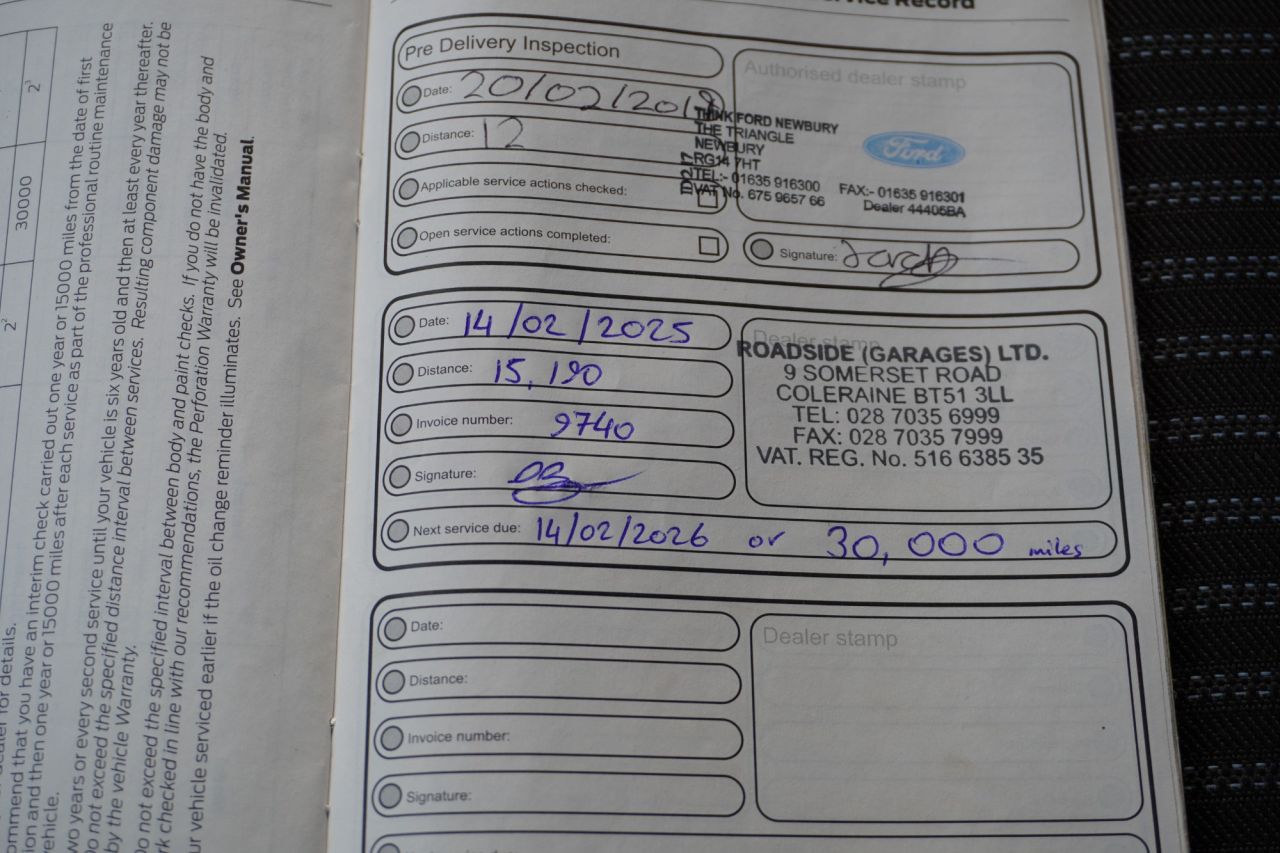 2³
30000
2²
ommend that you have an interim check carried out one year or 15000 miles from the date of first
ion and then one year or 15000 miles after each service as part of the professional routine maintenance
vehicle.
wo years or every second service until your vehicle is six years old and then at least every year thereafter.
Do not exceed the specified distance interval between services. Resulting component damage may not be
by the vehicle Warranty.
Do not exceed the specified interval between body and paint checks. If you do not have the body and
rk checked in line with our recommendations, the Perforation Warranty will be invalidated.
ur vehicle serviced earlier if the oil change reminder illuminates. See Owner's Manual.
Record
Pre Delivery Inspection
Date: 20/02/2019
Distance: 12
Applicable service actions checked:
Open service actions completed:
Authorised dealer stamp
THINK FORD NEWBURY
THE TRIANGLE
NEWBURY
RG14 7HT
TEL:- 01635 916300 FAX:- 01635 916301
VAT No. 675 9657 66 Dealer 44405BA
Ford
Signature:
Date: 14/02/2025
Distance: 15,190
Invoice number: 9740
Signature:
Next service due: 14/02/2026 or 30,000 miles
Dealer stamp
ROADSIDE (GARAGES) LTD.
9 SOMERSET ROAD
COLERAINE BT51 3LL
TEL: 028 7035 6999
FAX: 028 7035 7999
VAT. REG. No. 516 6385 35
Date:
Distance:
Invoice number:
Signature:
Dealer stamp